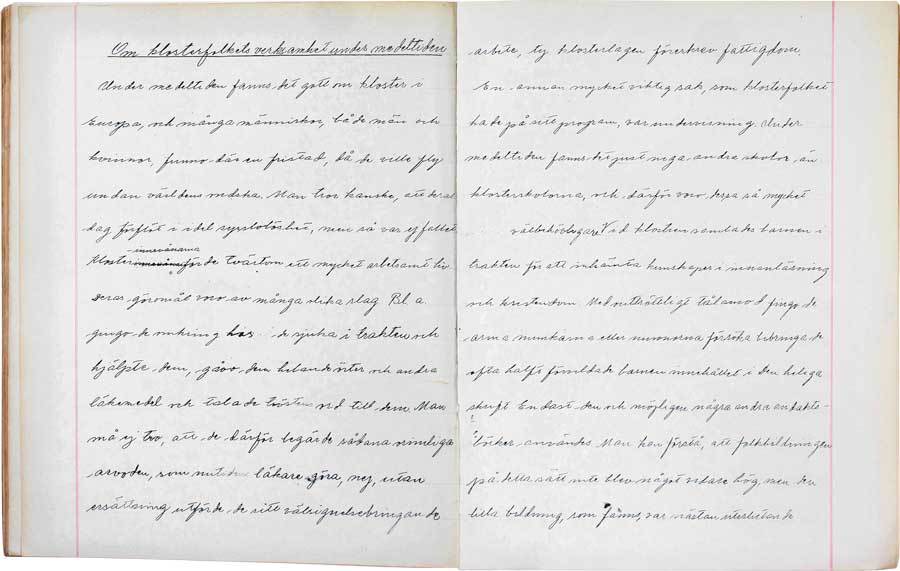 Om klosterfolkets verksamhet under medeltiden
Under medeltiden fanns det gott om kloster i
Europa, och många människor, både män och
kvinnor, funno där en fristad, då de ville fly
undan världens ondska. Man tror kanske, att deras
dag förflöt i idel sysslolöshet, men så var ej fallet
innevånarna
Kloster förde tvärtom ett mycket arbetsamt liv.
Deras göromål voro av många olika slag Bl. a.
gingo de omkring hos de sjuka i trakten och
hjälpte dem, gåvo dem helande örter och andra
läkemedel och talade tröstens ord till dem. Man
må ej tro, att de därför begärde sådana orimliga
arvoden, som nutidens läkare göra, nej, utan
ersättning utförde de sitt välsignelsebringande
arbete, ty klosterlagen föreskrev fattigdom.
En annan mycket viktig sak, som klosterfolket
hade på sitt program, var undervisning. Under
medeltiden fanns det just inga andra skolor än
klosterskolorna, och därför voro dessa så mycket
välbehövligare. Vid klostren samlades barnen i
trakten för att inhämta kunskaper i innanläsning
och kristendom. Med outtröttligt tålamod fingo de
arma munkarna eller nunnorna försöka bibringa de
ofta halft förvildade barnen innehållet i den heliga
skrift. Endast den och möjligen några andra andakts-
böcker användes. Man kan förstå, att folkbildningen
på detta sätt inte blev något vidare hög, men den
lilla bildning, som fanns, var nästan uteslutande